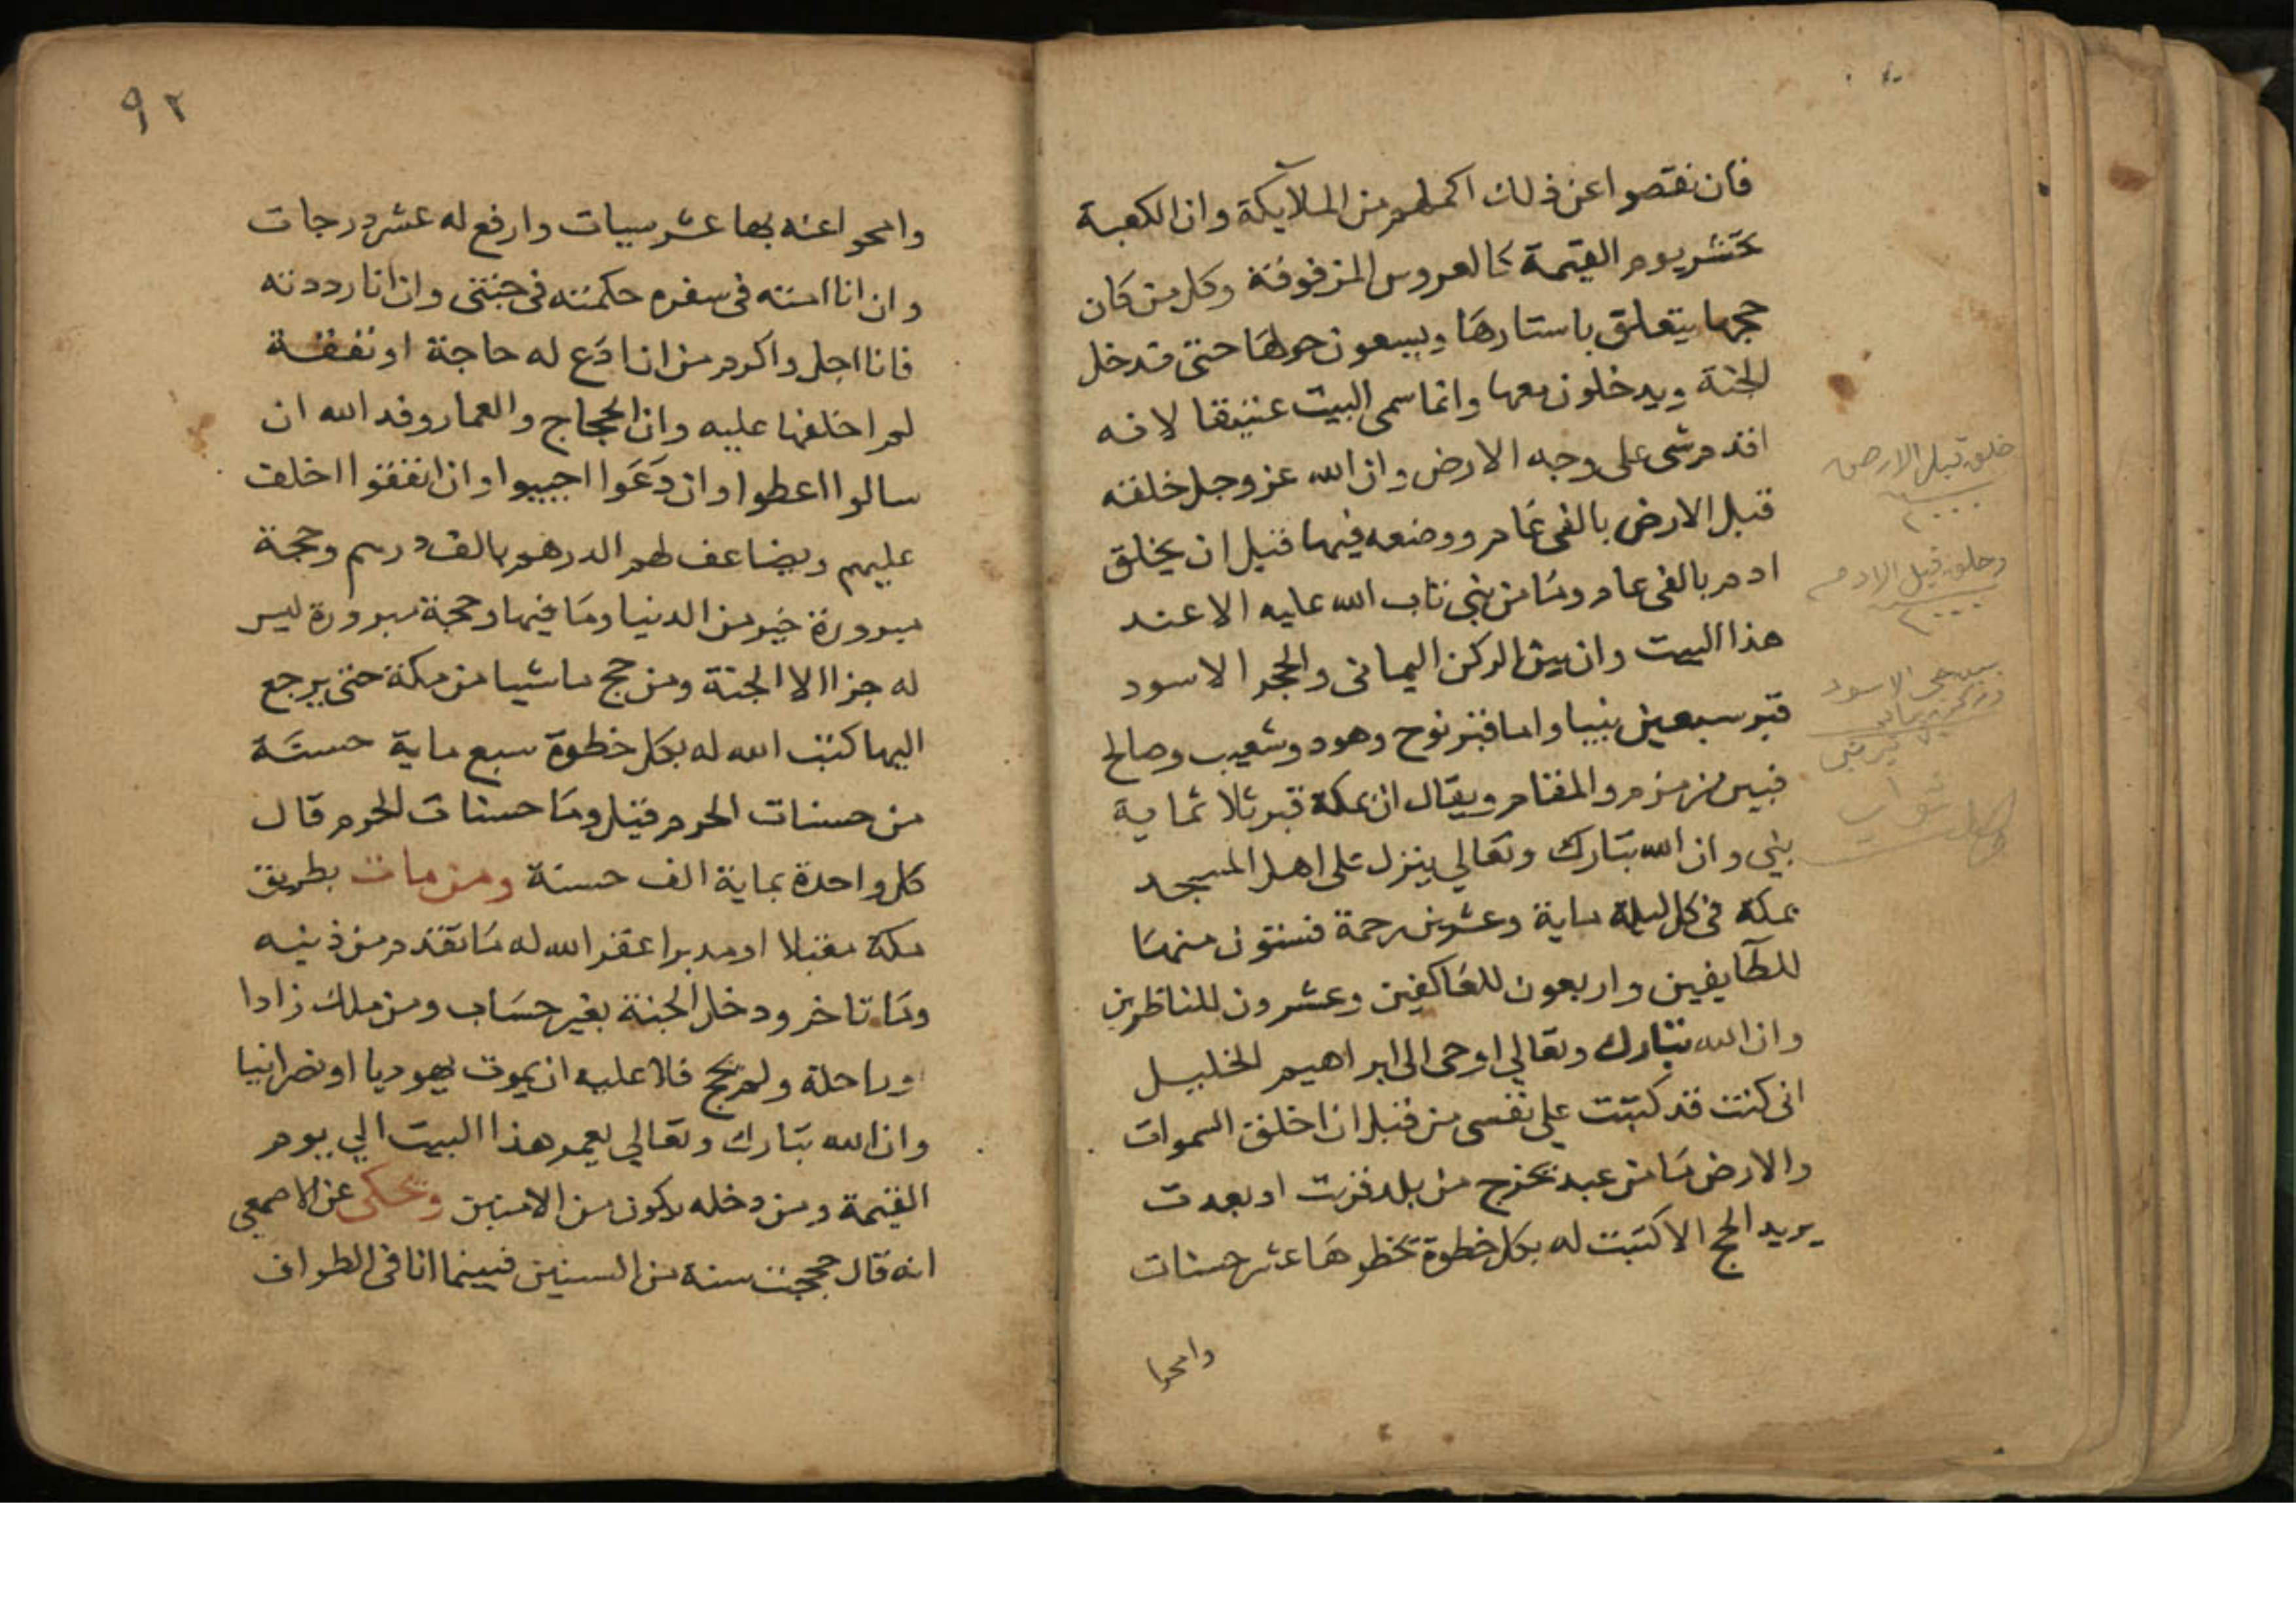 فان نقصوا عن ذلك اكملهم من الملآيكة وان الكعبة
تحشر يوم القيمة كالعروس المزفوفة وكل من كان
حجها يتعلق باستارها ويسعون حولها حتى تدخل
الجنة ويدخلون معها وانما سمى البيت عتيقا لانه
اقدم شى على وجه الارض وان الله عز وجل خلقه
قبل الارض بالفى عام ووضعه فيها قبل ان يخلق
ادم بالفى عام وما من نبى تاب الله عليه الا عند
هذا البيت وان بين الركن اليمانى والحجر الاسود
قبر سبعين نبيا واما قبر نوح وهود وشعيب وصالح
فبين زمزم والمقام ويقال ان بمكة قبر ثلاثماية
نبي وان الله تبارك وتعالي ينزل على اهل المسجد
بمكة فى كل ليلة ماية وعشرين رحمة فستون منها
للطآيفين واربعون للعاكفين وعشرون للناظرين
وان الله تبارك وتعالي اوحى الى ابراهيم الخليل
انى كنت قد كتبت على نفسى من قبل ان اخلق السموات
والارض ما من عبد يخرج من بلد قربت او بعدت
يريد الحج الا كتبت له بكل خطوة تخطوها عشر حسنات
وامحوا
خلق قبل الارض
٢٠٠٠
وخلق قبل الادم
٢٠٠٠
٩٢
وامحوا عنه بها عشر سيات وارفع له عشر درجات
وان انا امته فى سفره حكمته فى جنتى وان انا رددته
فانا اجل واكرم من ان ادَع له حاجة او نفقة
لم اخلفها عليه وان الحجاج والعمار وفد الله ان
سالوا اعطوا وان دَعَوا اجيبوا وان انفقوا اخلف
عليهم ويضاعف لهم الدرهم بالف درهم وحجة
مبرورة خير من الدنيا وما فيها وحجة مبرورة ليس
له جزا الا الجنة ومن حج ماشيا من مكة حتى يرجع
اليها كتب الله له بكل خطوة سبع ماية حسنة
من حسنات الحرم قيل وما حسنات الحرم قال
كل واحدة بماية الف حسنة ومن مات بطريق
مكة مقبلا او مدبرا غفر الله له ما تقدم من ذنبه
وما تاخر ودخل الجنة بغير حساب ومن ملك زادا
وراحلة ولم يحج فلا عليه ان يموت يهوديا او نصرانيا
وان الله تبارك وتعالي يعمر هذا البيت الي يوم
القيمة ومن دخله يكون من الامنين ويحكى عن الاصمعي
انه قال حججت سنة من السنين فبينما انا فى الطواف